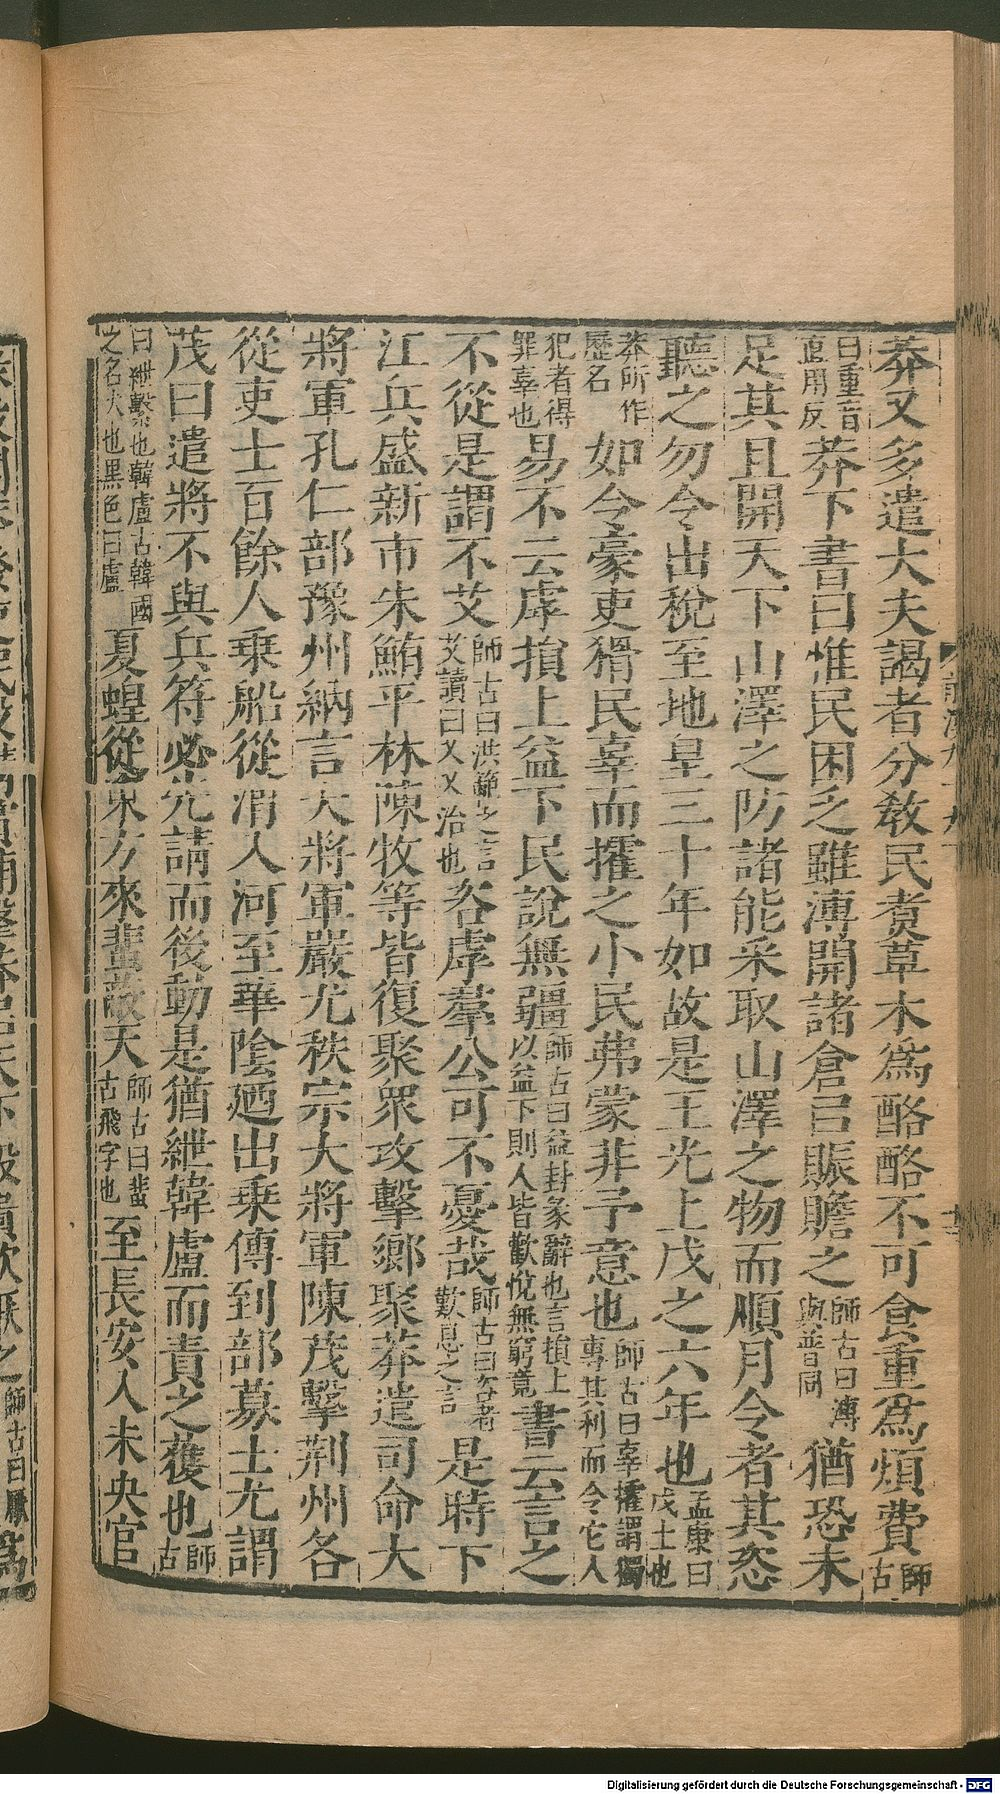 莽又多遣大夫謁者分敎民煑草木爲酪酪不可食重爲煩費師古
曰重音直用反莽下書曰惟民困乏雖溥開諸倉㠯賑贍之師古曰溥與普同猶恐未
足其且開天下山澤之防諸能采取山澤之物而順月令者其恣
聽之勿令出稅至地皇三十年如故是王光上戊之六年也孟康曰戊土也
莽所作歷名如今豪吏猾民辜而攉之小民弗蒙非予意也師古曰辜攉謂獨專其利而令它人
犯者得罪辜也易不云虖損上益下民說無疆師古曰益封彖辭也言損上以益下則人皆歡悅無窮竟書云言之
不從是謂不艾師古曰洪範之言艾讀曰乂乂治也咨虖羣公可不憂哉師古曰咨者歎息之言是時下
江兵盛新市朱鮪平林陳牧等皆復聚衆攻擊鄉聚莽遣司命大
將軍孔仁部豫州納言大將軍嚴尤秩宗大將軍陳茂擊荆州各
從吏士百餘人乗船從渭入河至華陰廼出乗傳到部募士尤謂
茂曰遣將不與兵符必先請而後動是猶紲韓盧而責之獲也師古
曰紲繫也韓盧古韓國之名犬也黒色曰盧夏蝗從東方來蜚蔽天師古曰蜚古飛字也至長安入未央宫
師古曰厭
爲
Digitalisierung gefördert durch die Deutsche Forschungsgemeinschaft - DFG